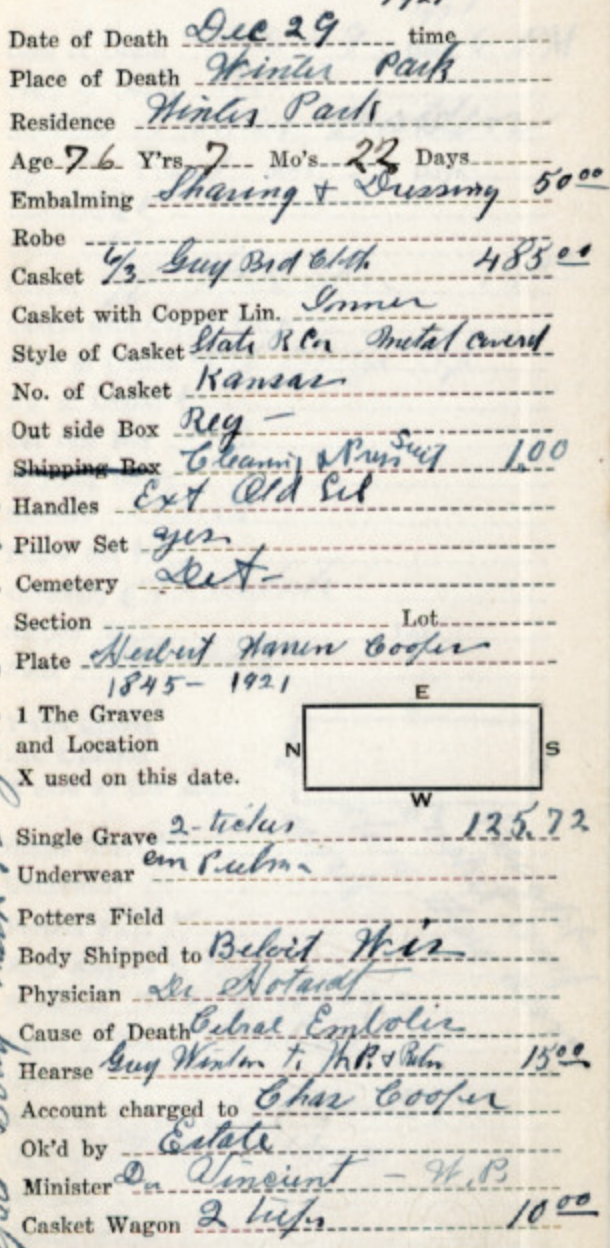 1921
Date of Death Dec 29 time
Place of Death Winter Park
Residence Winter Park
Age 76 Y'rs 7 Mo's 22 Days
Embalming Shaving + Dressing 50 00
Robe
Casket 6/3 Grey Brd Cloth 485 00
Casket with Copper Lin. Inner
Style of Casket State Metal covered
No. of Casket Kansas
Out side Box Reg -
Shipping Box Cleaning & Press Suit 1.00
Handles Ext Old Sil
Pillow Set yes
Cemetery
Section Lot
Plate Herbert Warren Cooper
1845 - 1921
E
1 The Graves
and Location
X used on this date.
N S
W
Single Grave 2 - tickets 125.72
Underwear
Potters Field
Body Shipped to Beloit Wis
Physician Dr
Cause of Death Cebral Embolis
Hearse Grey 15 00
Account charged to Chas Cooper
Ok'd by Estate
Minister Dr Vincient - W.P.
Casket Wagon 2 trips 10 00